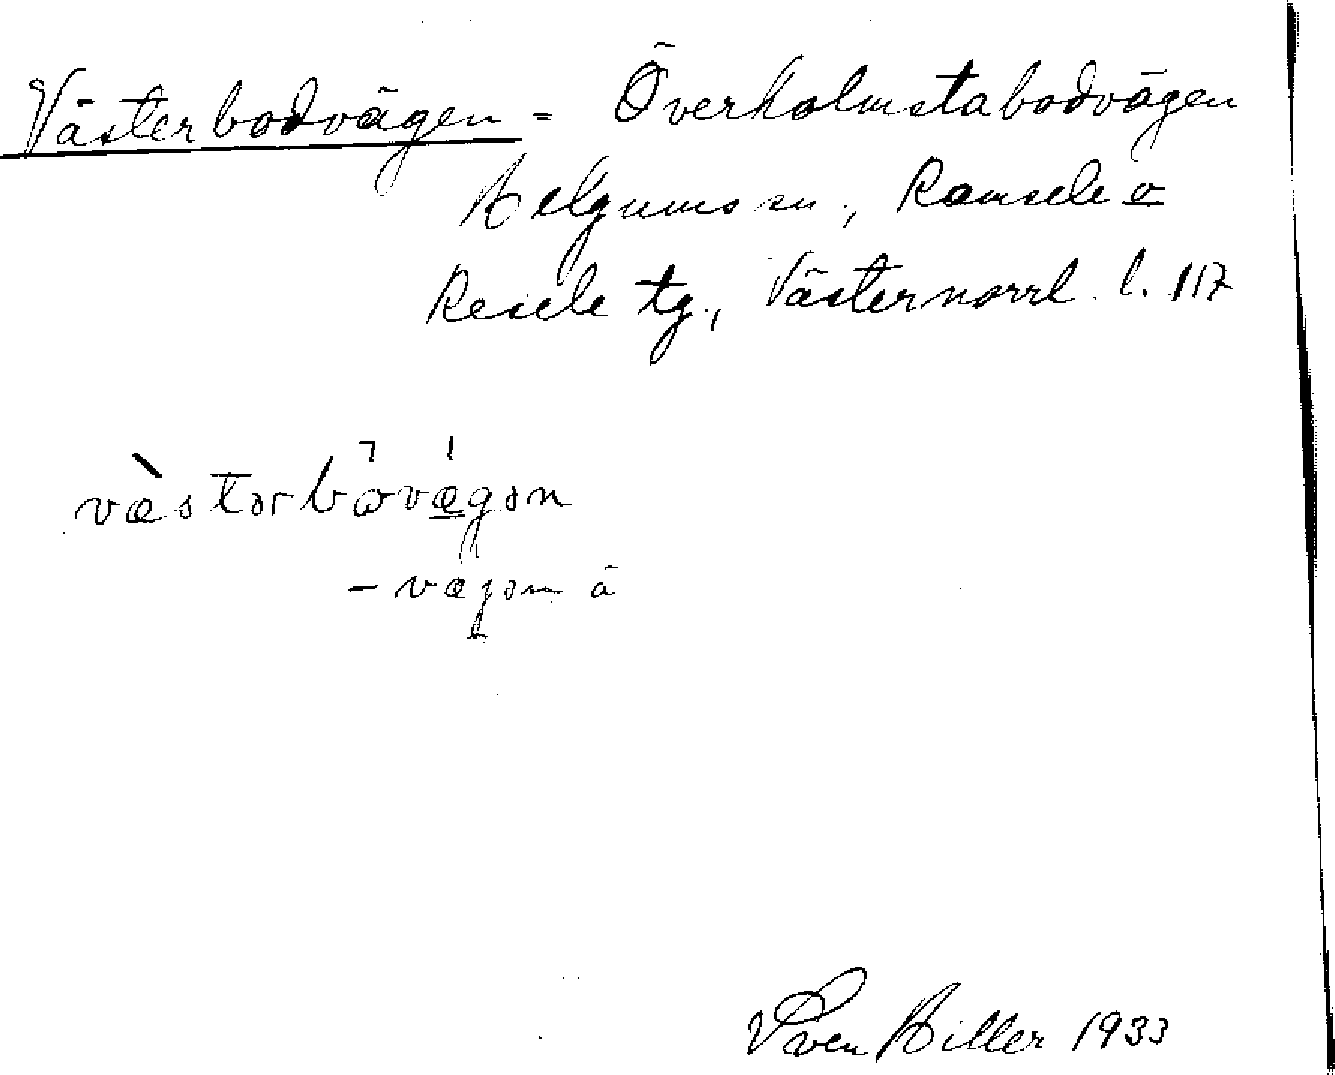 Västerbodvägen = Överholmstabodvägen
Helgums sn., Ramsele o
Resele tg., Västernorrl. l. 117
væstərbovægən
– vægən ä
Sven Hiller 1933